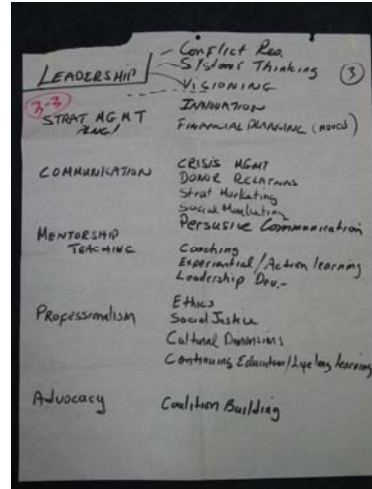 Conflict Res.
Systems Thinking
3
LEADERSHIP
VISIONING
3-3
INNOVATION
STRAT MGMT
FINANCIAL PLANNING
COMMUNICATION
CRISIS MGMT
DONOR RELATIONS
Strat Marketing
Social Marketing
Persusive Communication
MENTORSHIP
TEACHING
Coaching
Experiential/Action learning
Leadership Dev.-
Ethics
Professionalism
Social Justice
Cultural Dimensions
Continuing Education/Lifelong learning
Advocacy
Coalition Building